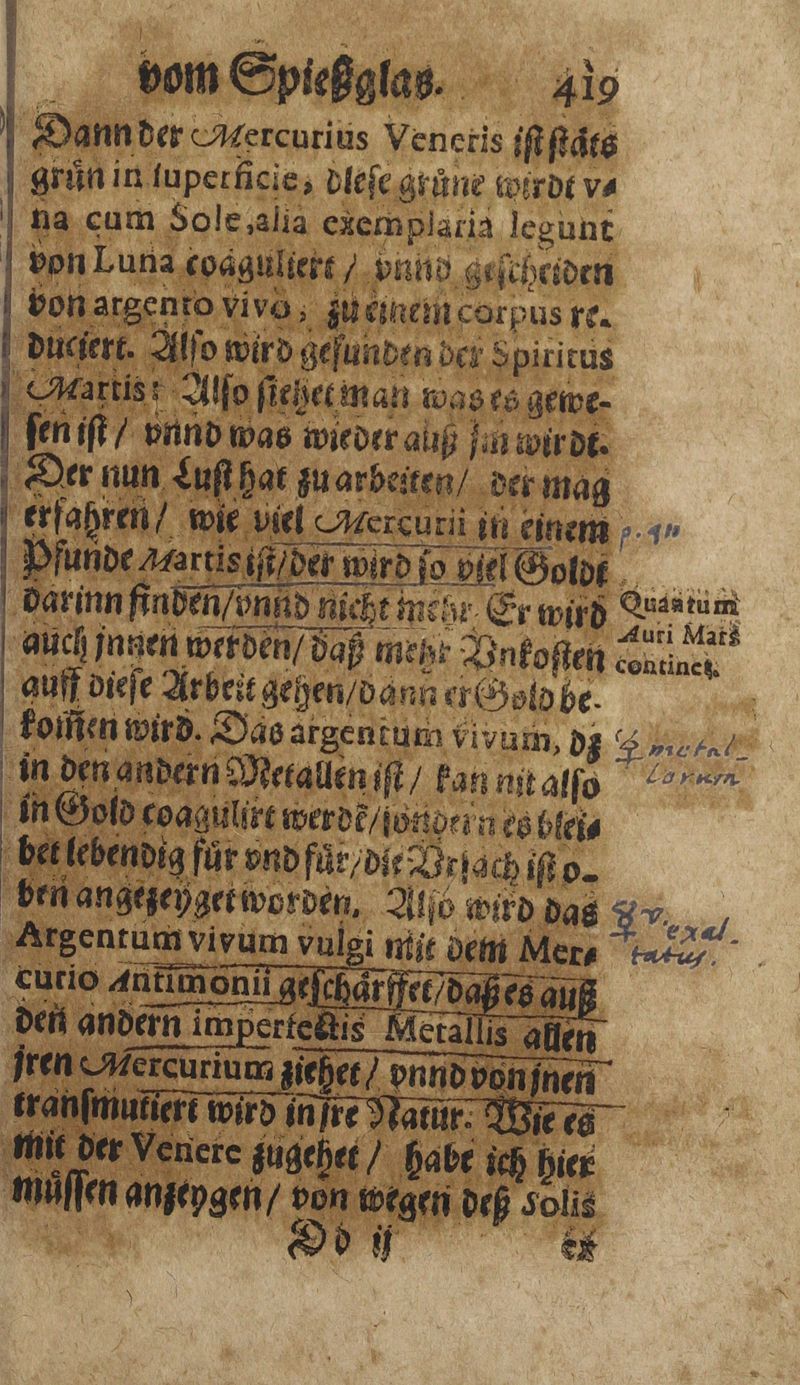 vom Spießglas. 419
Dann der Mercurius Veneris ist stäts
grün in superficie, diese grüne wirdt v⸗
na cum Sole, alia exemplaria legunt
von Luna coaguliert / vnnd gescheiden
von argento vivo, zu einem corpus re⸗
duciert. Also wird gefunden der Spiritus
Martis: Also siehet man was es gewe-
sen ist / vnnd was wieder auß jm wirdt.
Der nun Lust hat zu arbeiten / der mag
erfahren / wie viel Mercurii in einem
Pfunde Martis ist / der wird so viel Goldt
darinn finden / vnnd nicht mehr. Er wird
Quantum
Auri Mars
continet.
auch jnnen werden / daß mehr Vnkosten
auff diese Arbeit gehen / dann er Gold be-
kom̃en wird. Das argentum vivum, dz
☿ metal-
lorum
in den andern Metallen ist / kan nit also
in Gold coagulirt werdẽ / sondern es blei⸗
bet lebendig für vnd für / die Vrsach ist o-
ben angezeyget worden. Also wird das
☿ v. exal-
tatus.
Argentum vivum vulgi mit dem Mer⸗
curio Antimonii geschärffet / daß es auß
den andern imperfectis Metallis allen
jren Mercurium ziehet / vnnd von jnen
transmutiert wird in jre Natur. Wie es
mit der Venere zugehet / habe ich hier
müssen anzeygen / von wegen deß Solis
Dd ij ex